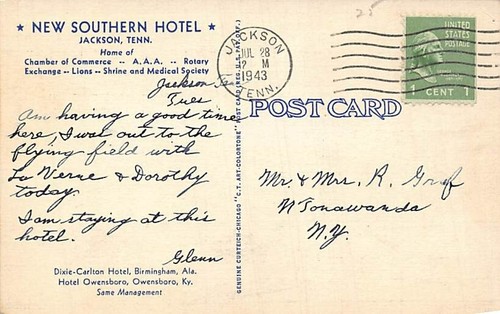 25
★ NEW SOUTHERN HOTEL ★
JACKSON, TENN.
Home of
Chamber of Commerce -- A.A.A. -- Rotary
Exchange -- Lions -- Shrine and Medical Society
Tues
Am having a good time
here, I was out to the
flying field with
La Verne & Dorothy
today.
I am staying at this
hotel.
Glenn
Dixie-Carlton Hotel, Birmingham, Ala.
Hotel Owensboro, Owensboro, Ky.
Same Management
GENUINE CURTEICH-CHICAGO "C.T. ART-COLORTONE" POST CARD (REG. U.S. PAT. OFF.)
JACKSON
JUL 28
M
1943
TENN.
UNITED
STATES
POSTAGE
1 CENT 1
POST CARD
Mr. & Mrs. R. Graf
N Tonawanda
N.Y.